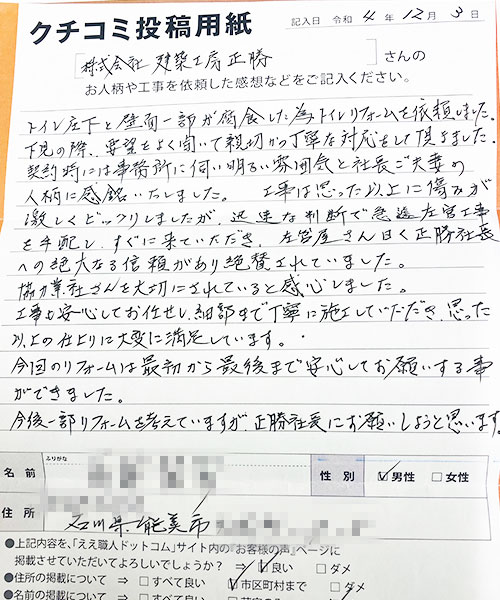 クチコミ投稿用紙
記入日 令和 4 年 12 月 3 日
株式会社 建築工房正勝 さんの
お人柄や工事を依頼した感想などをご記入ください。
トイレ床下と壁面一部が腐食した為トイレリフォームを依頼しました。
下見の際、要望をよく聞いて親切かつ丁寧な対応をして頂きました。
契約時には事務所に伺い明るい雰囲気と社長ご夫妻の
人柄に感銘いたしました。 工事は思った以上に傷みが
激しくビックリしましたが、迅速な判断で急遽左官工事
を手配し、すぐに来ていただき、左官屋さん曰く正勝社長
への絶大なる信頼があり絶賛されていました。
協力業社さんを大切にされていると感心しました。
工事も安心してお任せし、細部まで丁寧に施工していただき、思った
以上の仕上りに大変に満足しています。
今回のリフォームは最初から最後まで安心してお願いする事
ができました。
今後一部リフォームを考えていますが、正勝社長にお願いしようと思います。
ふりがな
名前 性別 ☑男性 □女性
住所 石川県能美市
●上記内容を、「ええ職人ドットコム」サイト内の"お客様の声"ページに
掲載させていただいてよろしいでしょうか? ⇒ ☑良い □ダメ
●住所の掲載について ⇒ □すべて良い ☑市区町村まで □ダメ
●名前の掲載について ⇒ □すべて良い